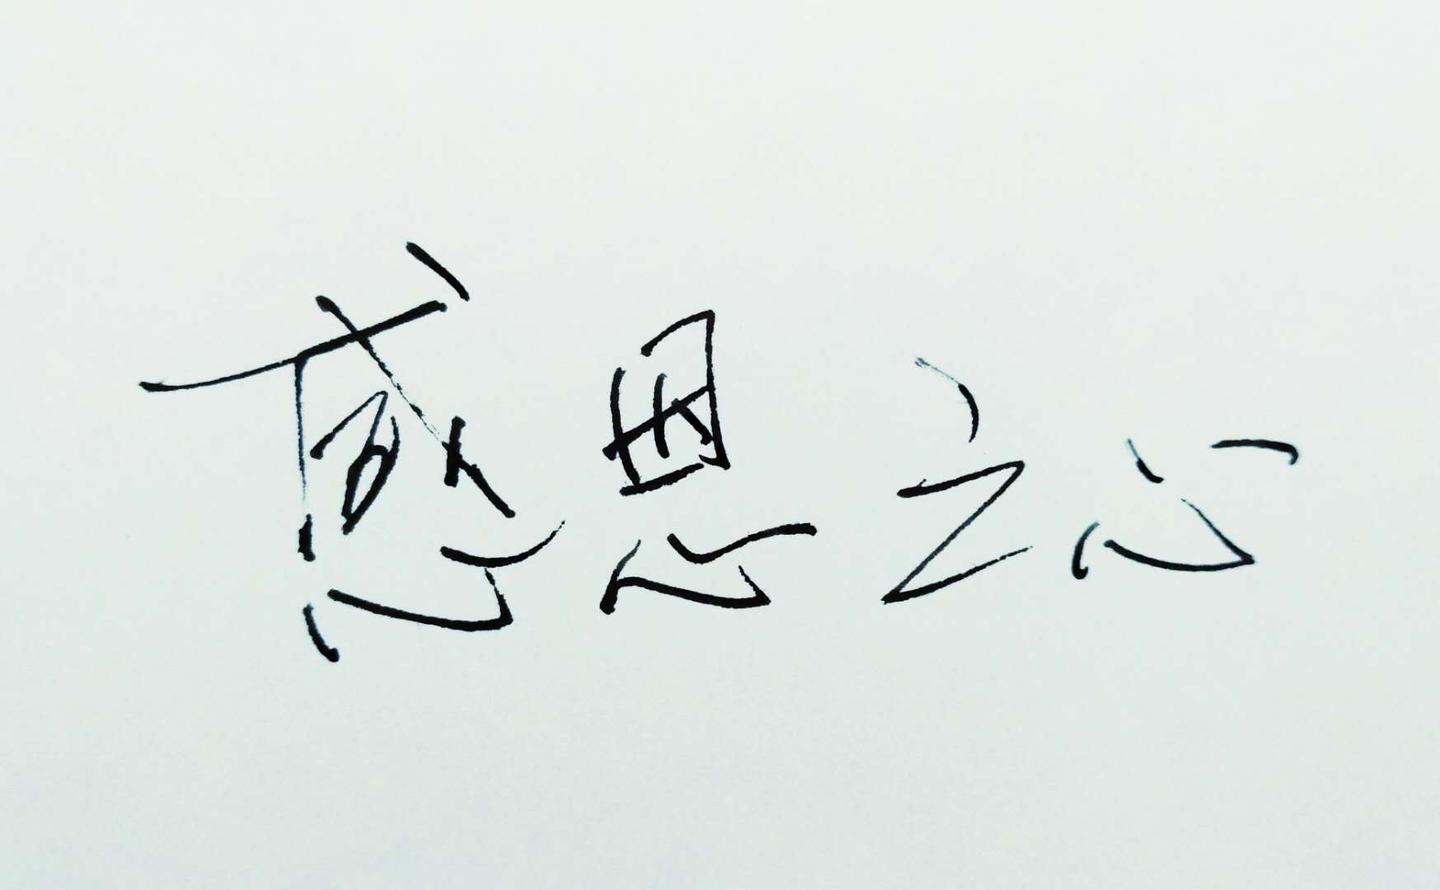 感恩之心